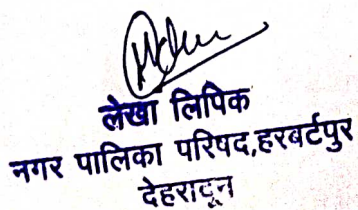 लेखा लिपिक
नगर पालिका परिषद,हरबर्टपुर
देहरादून